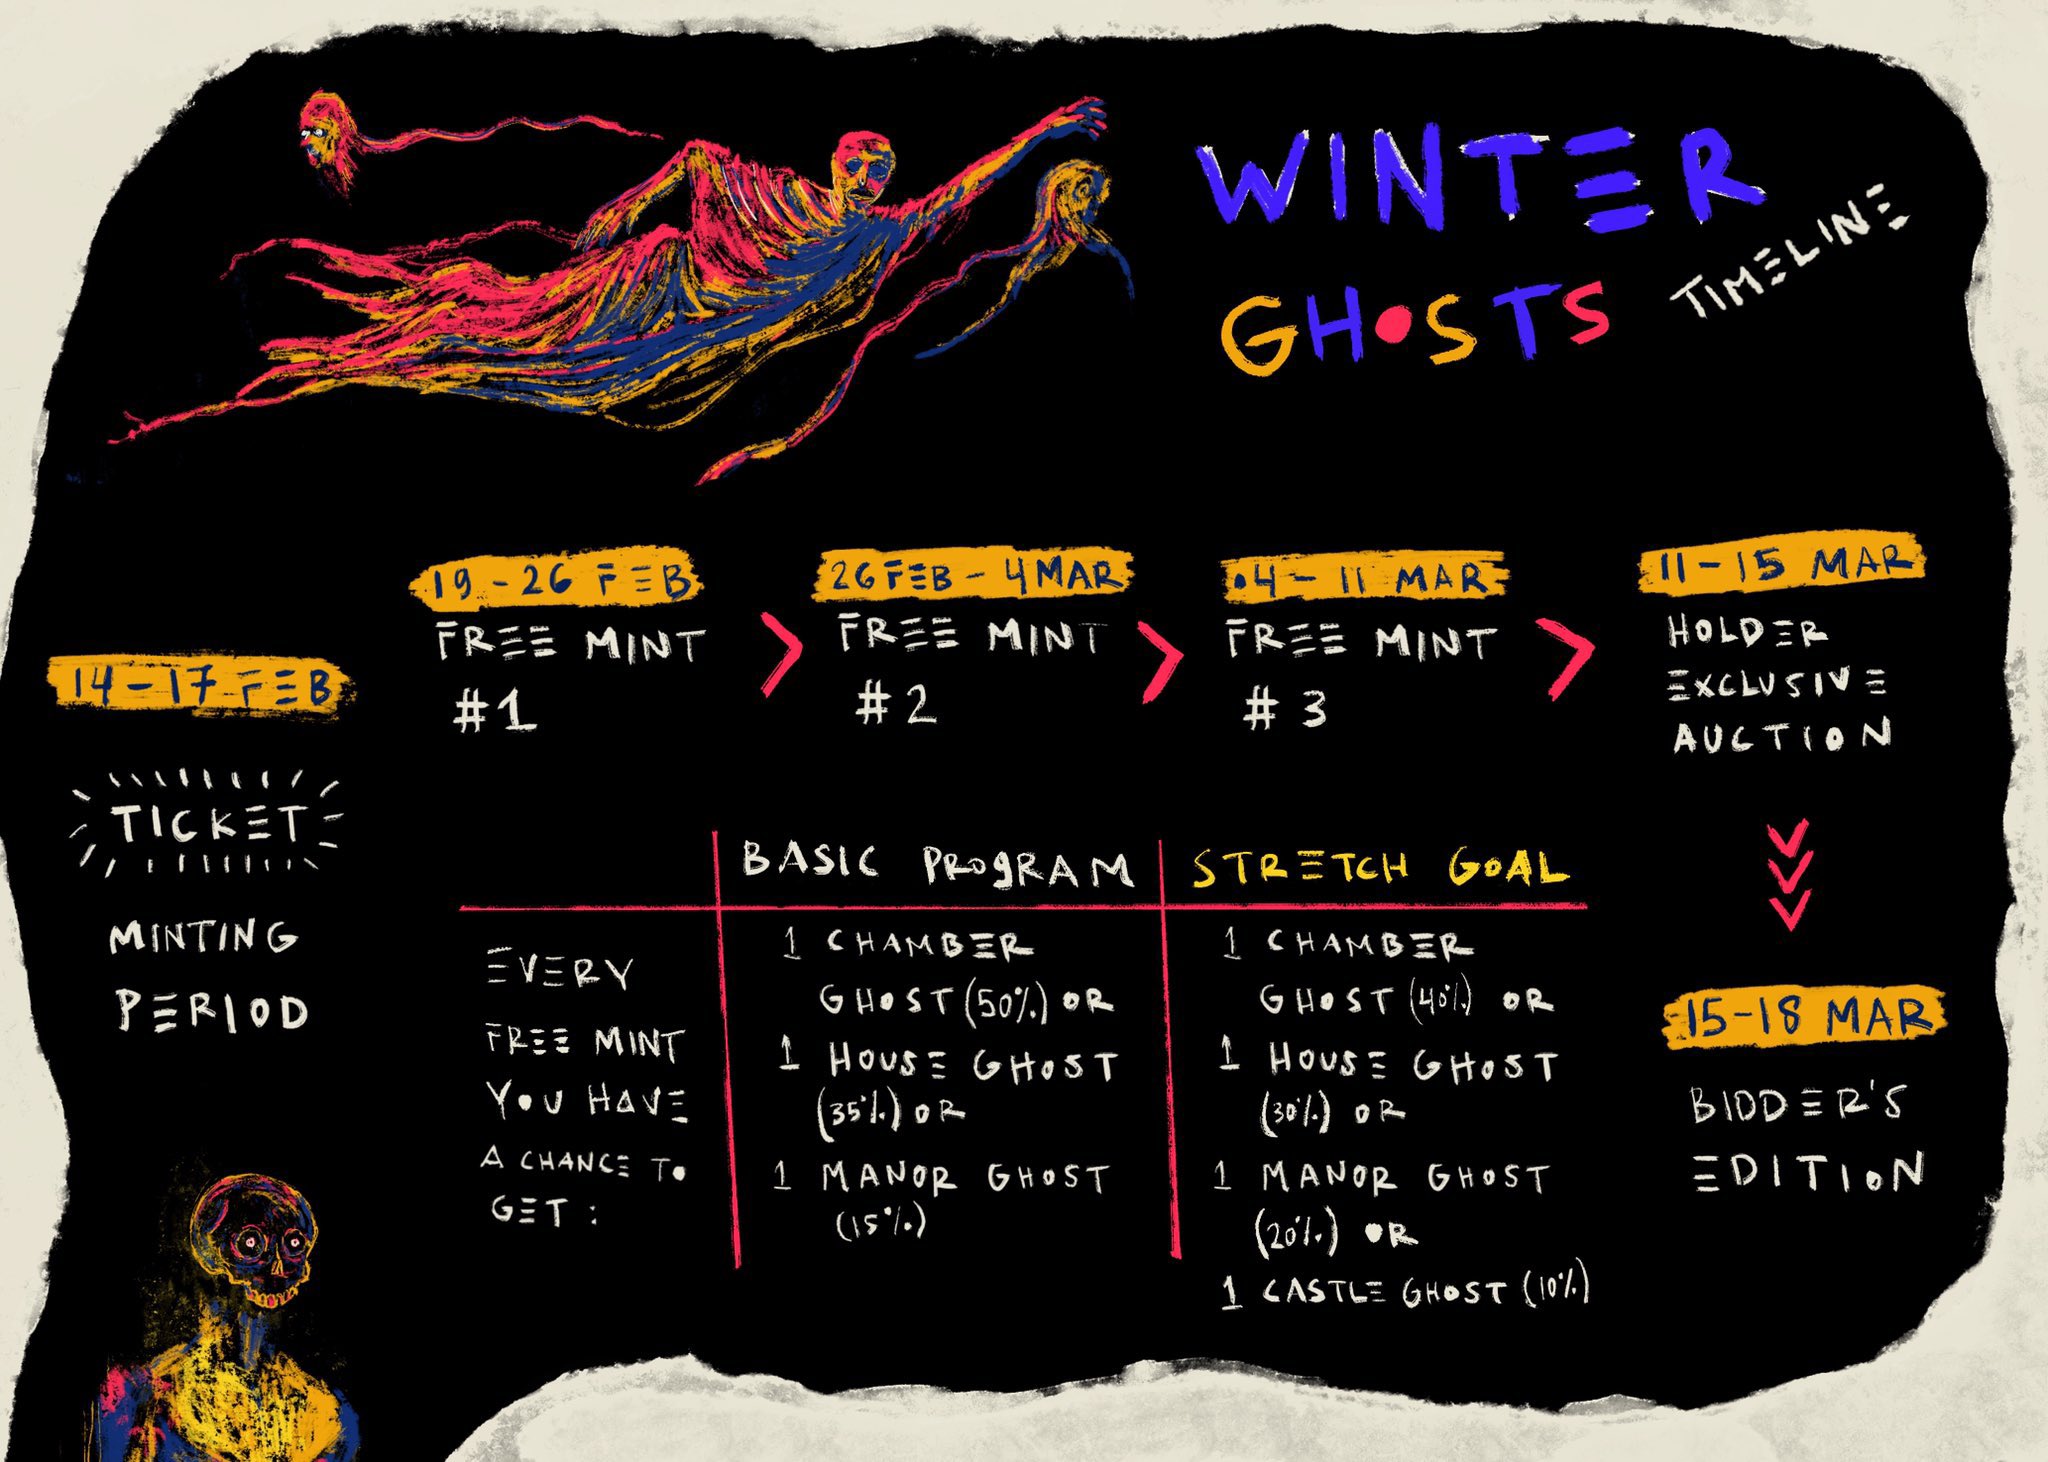 WINTER
GHOSTS
TIMELINE
14-17 FEB
TICKET
MINTING
PERIOD
19-26 FEB
FREE MINT
#1
>
26 FEB - 4 MAR
FREE MINT
#2
>
04 - 11 MAR
FREE MINT
#3
>
11-15 MAR
HOLDER
EXCLUSIVE
AUCTION
15-18 MAR
BIDDER'S
EDITION
EVERY
FREE MINT
YOU HAVE
A CHANCE TO
GET:
BASIC PROGRAM
1 CHAMBER
GHOST (50%) OR
1 HOUSE GHOST
(35%) OR
1 MANOR GHOST
(15%)
STRETCH GOAL
1 CHAMBER
GHOST (40%) OR
1 HOUSE GHOST
(30%) OR
1 MANOR GHOST
(20%) OR
1 CASTLE GHOST (10%)